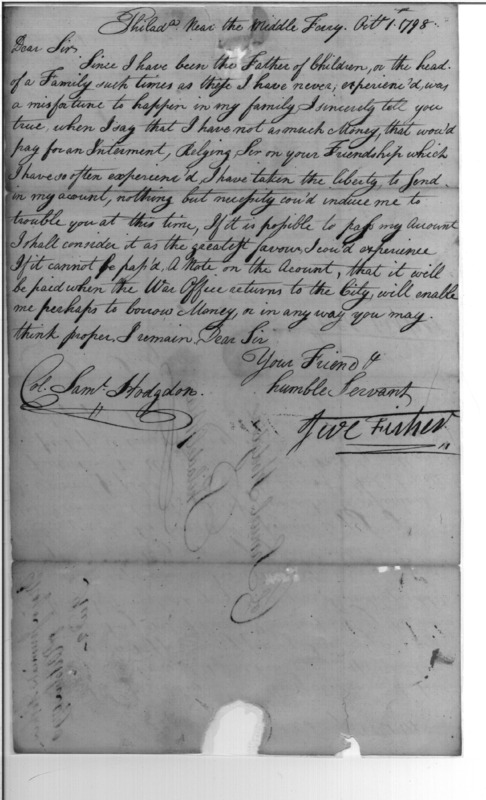 Philada. Near the Middle Ferry. Octr. 1st. 1798.
Dear Sir,
Since I have been the Father of Children, or the head
of a Family such times as these I have never, experienc'd, was
a misfortune to happin in my family I sincerely tell you
true, when I say that I have not as much Money, that wou'd
pay for an Interment, Relying Sir on your Friendship which
I have so often experienc'd, I have taken the liberty to Send
in my acount, nothing but necessity cou'd induce me to
trouble you at this time, If it is possible to pass my Acount
I shall consider it as the greatest favour, I cou'd experience
If it cannot be pass'd, A Note on the Acount, that it will
be paid when the War Office returns to the City, will enable
me perhaps to borrow Money, or in any way you may
think proper, I remain, Dear Sir
Your Friend &
humble Servant
Col. Saml. Hodgdon.
Fisher